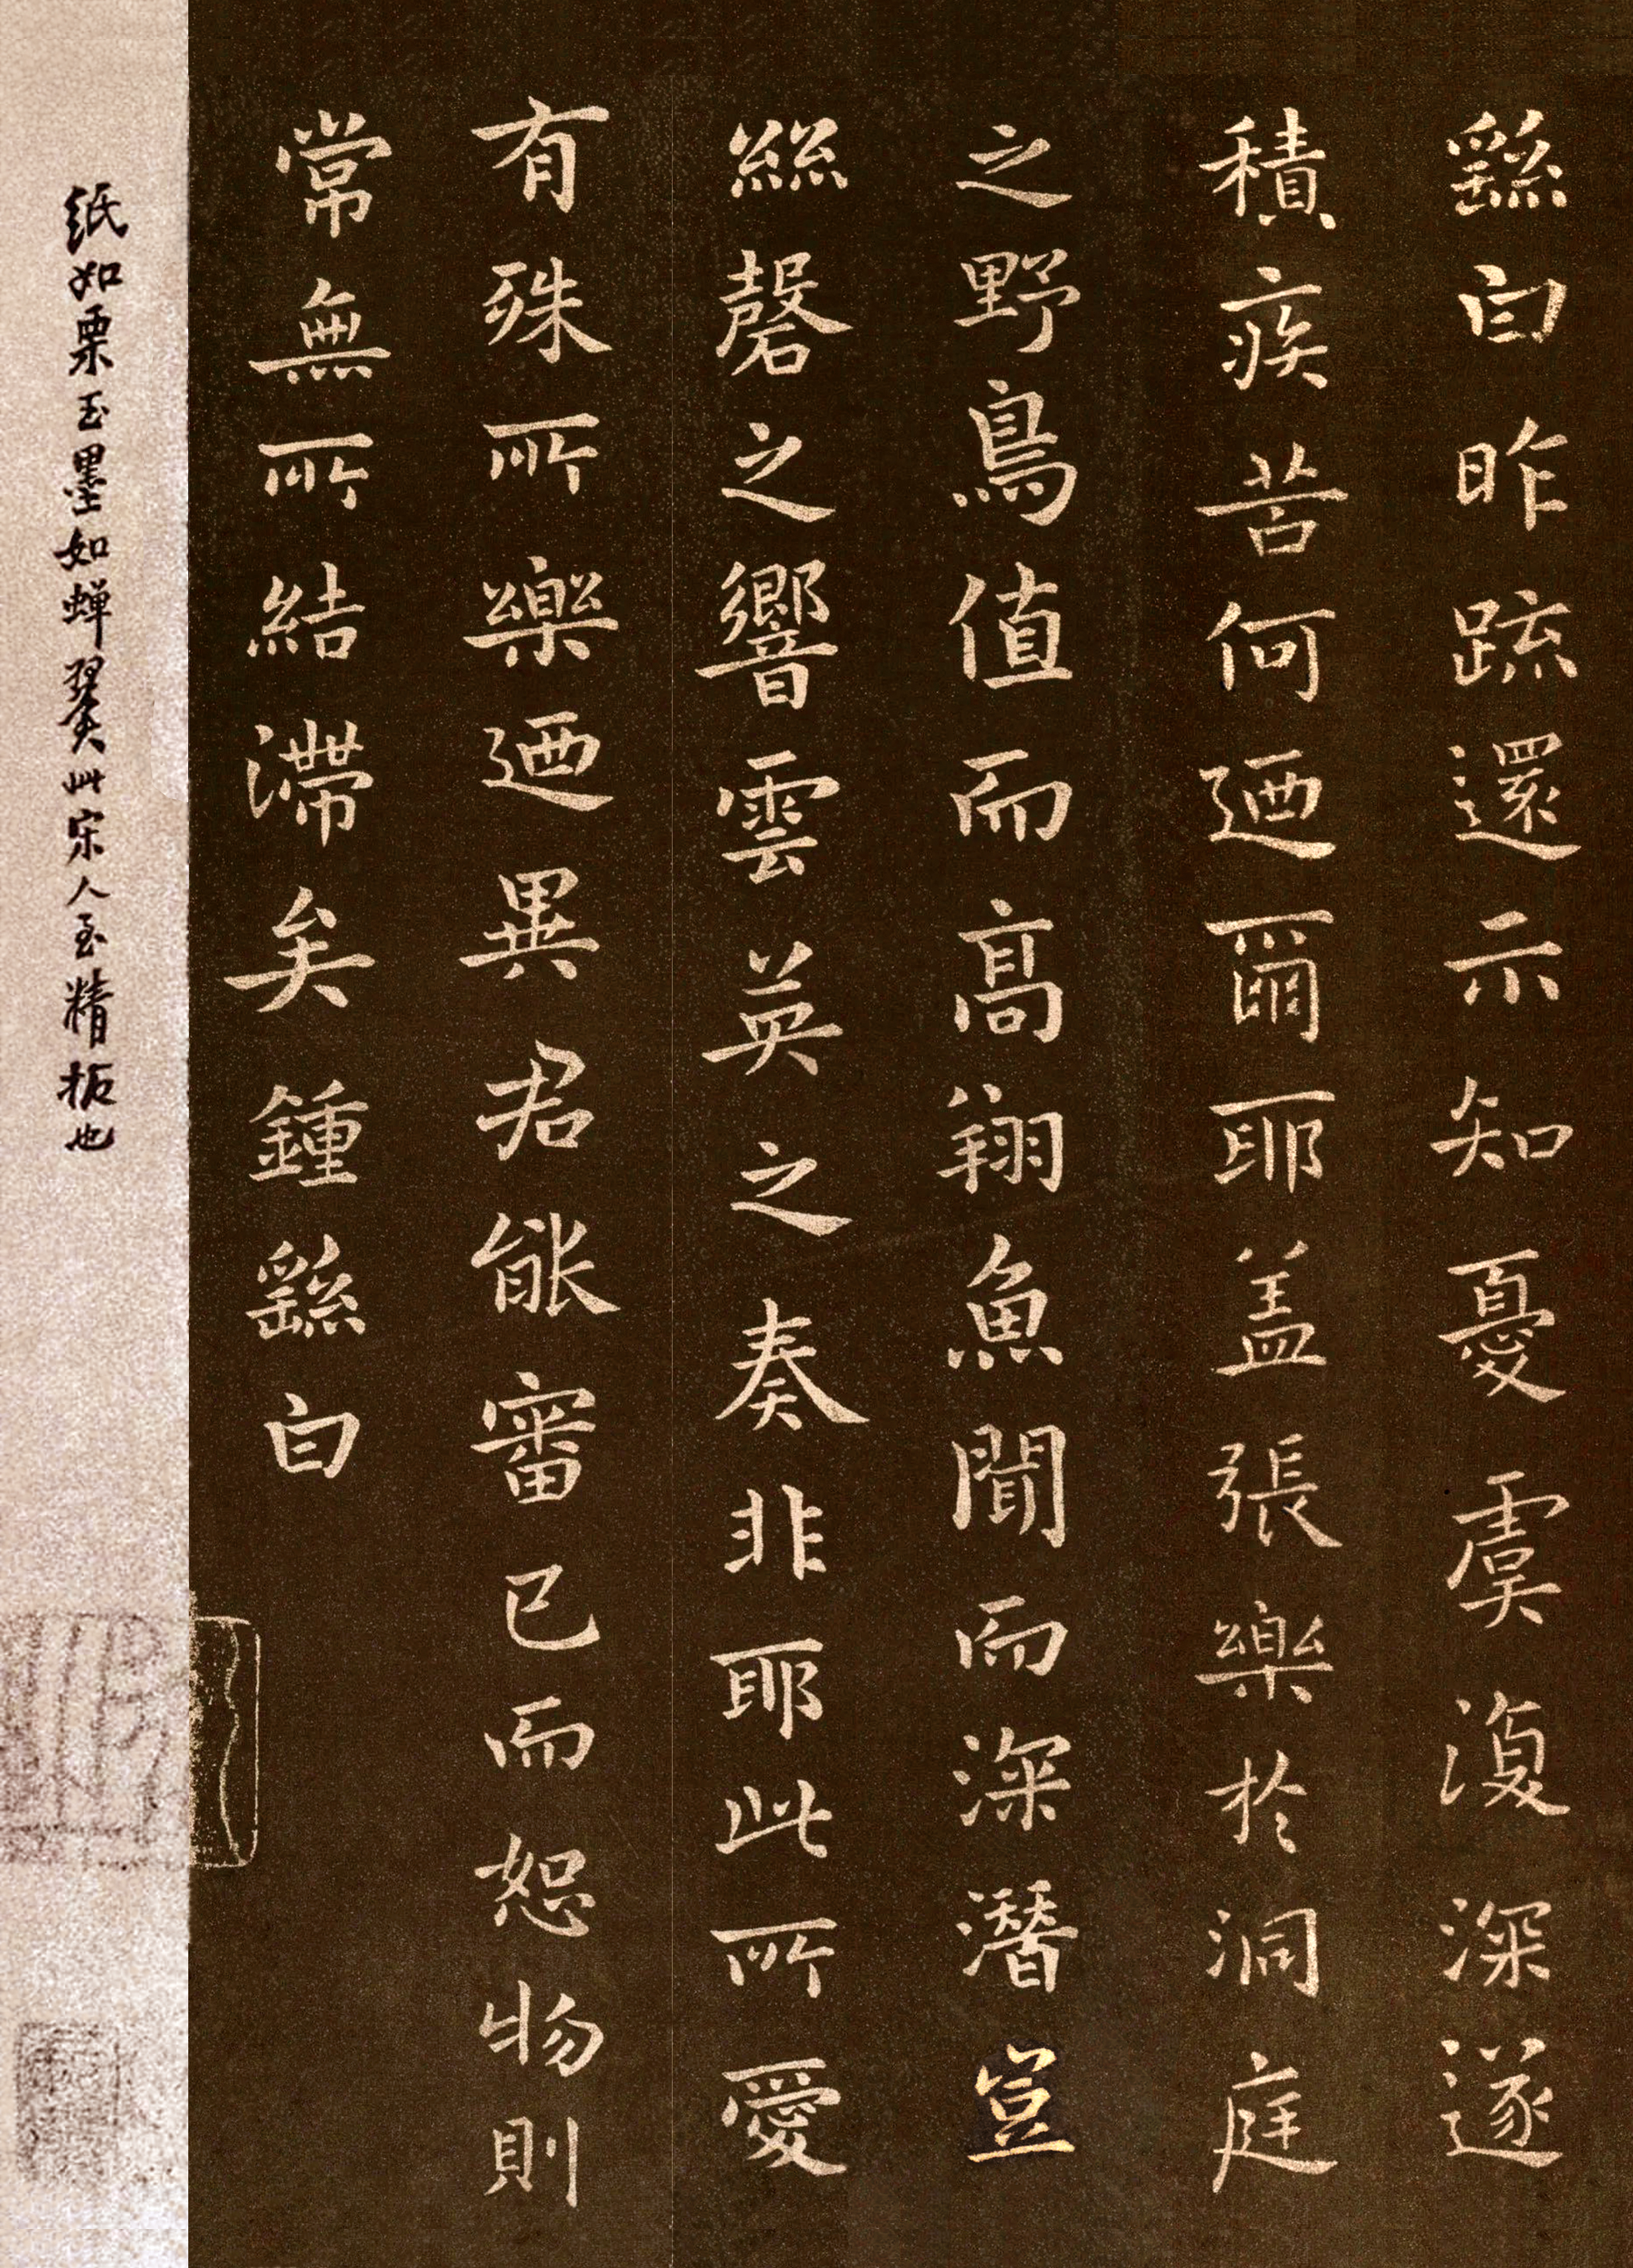 繇白昨疏還示知憂虞復深遂
積疾苦何迺爾耶盖張樂於洞庭
之野鳥值而高翔魚聞而深潛豈
絲磬之響雲英之奏非耶此所愛
有殊所樂迺異君能審己而恕物則
常無所結滯矣鍾繇白
纸如栗玉墨如蝉翼此宋人至精拓也